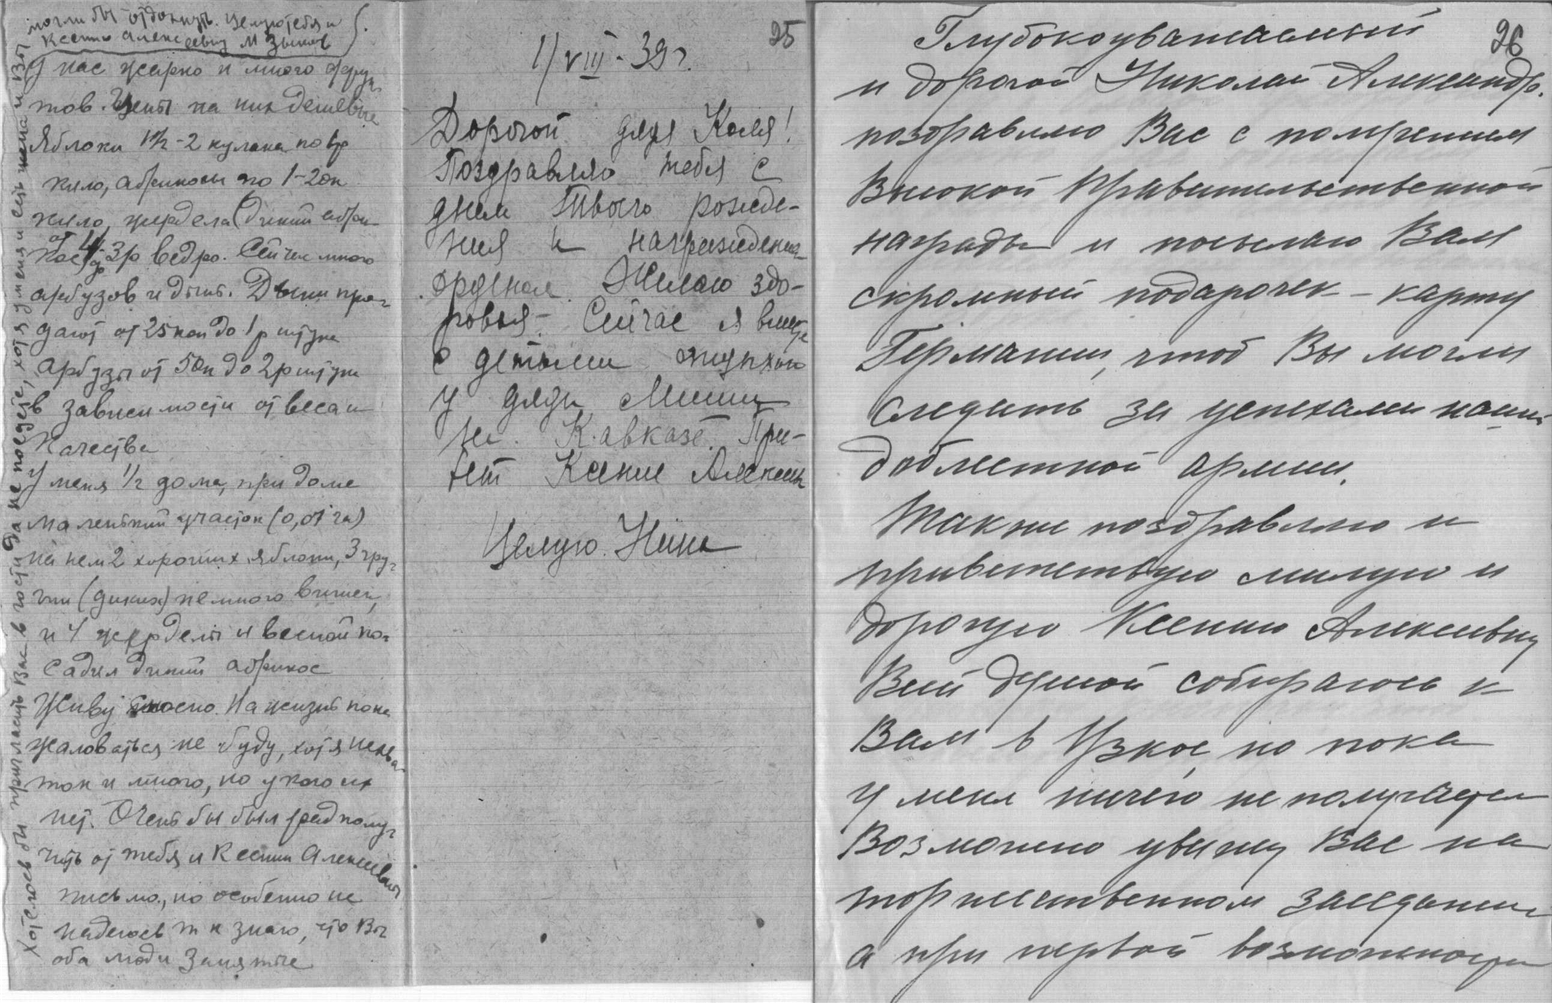 могли бы отдохнуть. Целую тебя и
Ксению Алексеевну М Зыков
У нас жарко и много фрук-
тов. Цены на них дешевые
Яблоки 1½-2
кило, абрикосы по 1-2
кило, жердела (дикий абри-
кос) 3р ведро. Сейчас много
арбузов и дынь. Дыни про-
дают от 25 коп до 1 р штука
арбузы от 50к до 2р штука
в зависимости от веса и
качества
У меня 1/2 дома, при доме
маленький участок (0,01 га)
на нем 2 хороших яблони, 3 гру-
ши (диких) немного вишен,
и 4 жерделы и весной по-
садил дикий абрикос
Живу сносно. На жизнь пока
жаловаться не буду, хотя нехва-
ток и много, но у кого их
нет. Очень бы был рад полу-
чить от тебя и Ксении Алексеевны
письмо, но особенно не
надеюсь т к знаю, что Вы
оба люди занятые
Хотелось бы пригласить Вас в гости да не поедете, хотя у меня и есть жена и Вы
25
1/VIII-39 г.
Дорогой дядя Коля!
Поздравляю тебя с
днем Твоего рожде-
ния и награждения
орденом. Желаю здо-
ровья. Сейчас я вместе
с детьми отдыхаю
у дяди Миши
на Кавказе. При-
вет Ксении Алексеев
Целую. Нина
26
Глубокоуважаемый
и дорогой Николай Александр.
поздравляю Вас с получением
Высокой Правительственной
награды и посылаю Вам
скромный подарочек - карту
Германии, чтоб Вы могли
следить за успехами нашей
доблестной армии.
Также поздравляю и
приветствую милую и
дорогую Ксению Алексеевну
Всей душой собираюсь к
Вам в Узкое, но пока
у меня ничего не получается
Возможно увижу Вас на
торжественном заседании
а при первой возможности